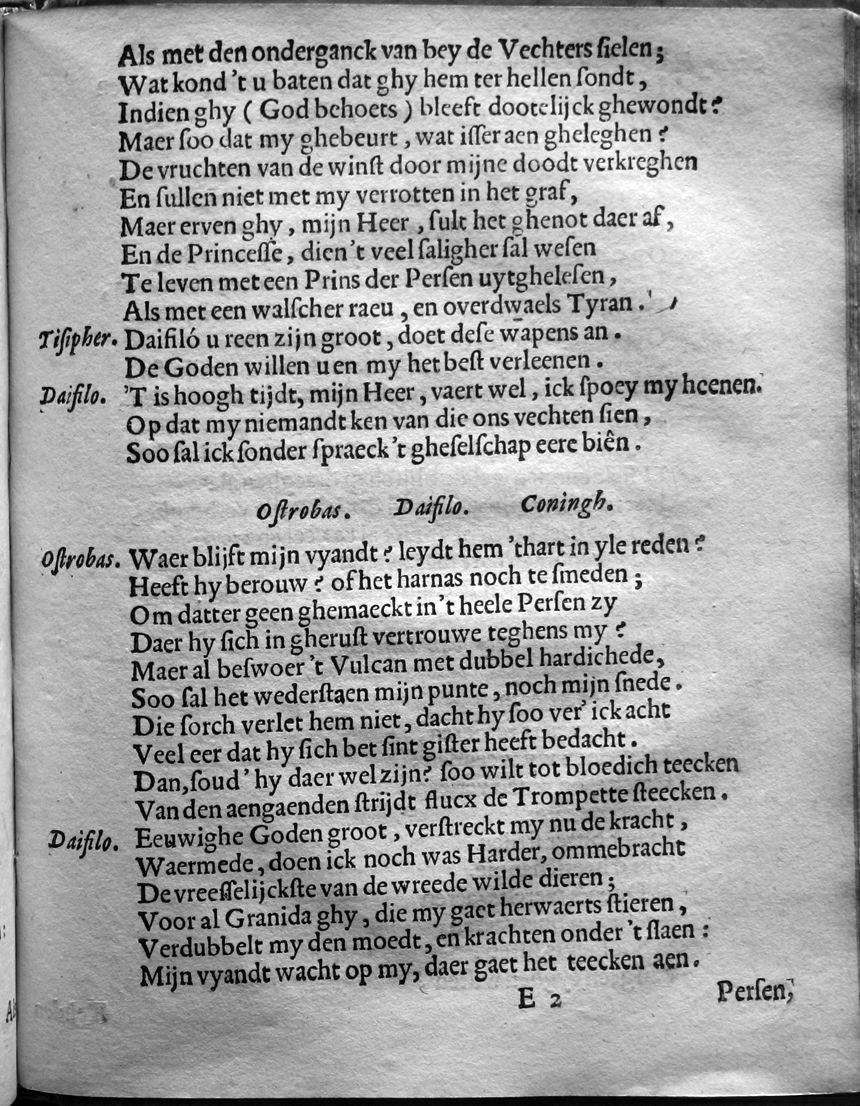 Als met den onderganck van bey de Vechters ſielen;
Wat kond 't u baten dat ghy hem ter hellen ſondt,
Indien ghy ( God behoets ) bleeft dootelijck ghewondt?
Maer ſoo dat my ghebeurt, wat iſſer aen gheleghen?
De vruchten van de winſt door mijne doodt verkreghen
En ſullen niet met my verrotten in het graf,
Maer erven ghy, mijn Heer, ſult het ghenot daer af,
En de Princeſſe, dien 't veel ſaligher ſal weſen
Te leven met een Prins der Perſen uytgheleſen,
Als met een walſcher raeu, en overdwaels Tyran.
Tiſipher. Daifiló u reen zijn groot, doet deſe wapens an.
De Goden willen u en my het beſt verleenen.
Daifilo. 'T is hoogh tijdt, mijn Heer, vaert wel, ick ſpoey my heenen.
Op dat my niemandt ken van die ons vechten ſien,
Soo ſal ick ſonder ſpraeck 't gheſelſchap eere biên.
Oſtrobas. Daifilo. Coningh.
Oſtrobas. Waer blijft mijn vyandt? leydt hem 'thart in yle reden?
Heeft hy berouw? of het harnas noch te ſmeden;
Om datter geen ghemaeckt in 't heele Perſen zy
Daer hy ſich in gheruſt vertrouwe teghens my?
Maer al beſwoer 't Vulcan met dubbel hardichede,
Soo ſal het wederſtaen mijn punte, noch mijn ſnede.
Die ſorch verlet hem niet, dacht hy ſoo ver' ick acht
Veel eer dat hy ſich bet ſint giſter heeft bedacht.
Dan, ſoud' hy daer wel zijn? ſoo wilt tot bloedich teecken
Van den aengaenden ſtrijdt flucx de Trompette ſteecken.
Daifilo. Eeuwighe Goden groot, verſtreckt my nu de kracht,
Waermede, doen ick noch was Harder, ommebracht
De vreeſſelijckſte van de wreede wilde dieren;
Voor al Granida ghy, die my gaet herwaerts ſtieren,
Verdubbelt my den moedt, en krachten onder 't ſlaen:
Mijn vyandt wacht op my, daer gaet het teecken aen.
E 2 Perſen,